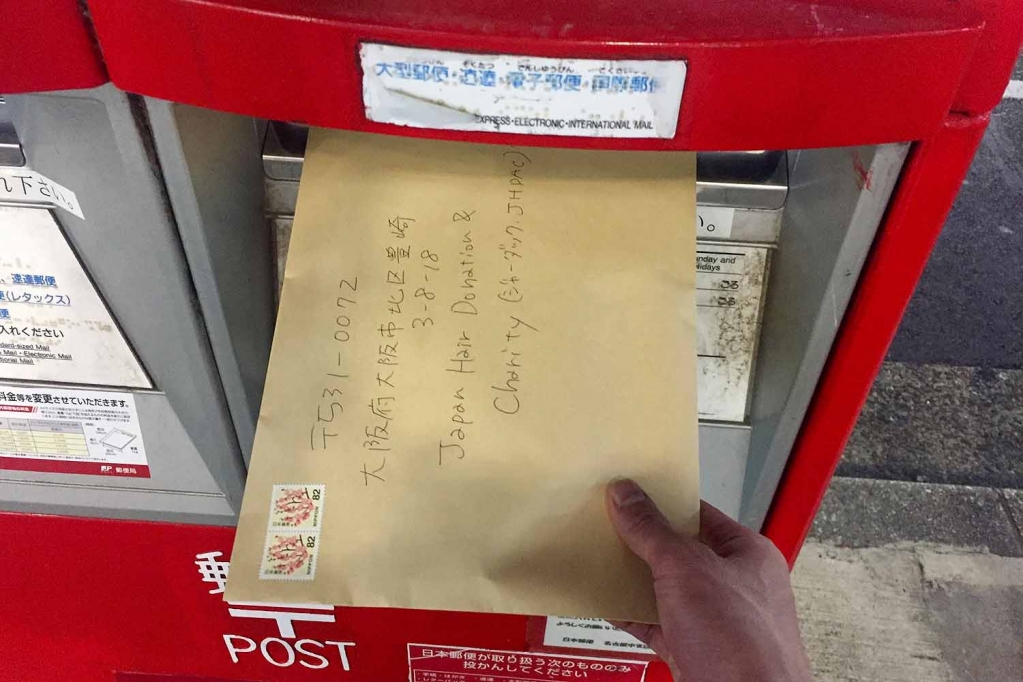 大型郵便・速達・電子郵便・国際郵便
EXPRESS・ELECTRONIC・INTERNATIONAL MAIL
〒531-0072
大阪府大阪市北区豊崎
3-8-18
Japan Hair Donation &
Charity (ジャーダック.JHDAC)
82
日本郵便
NIPPON
82
日本郵便
NIPPON
れ下さい。
い。
速達郵便
便(レタックス)
便
入れください
dard-sized Mail
Mail・Electronic Mail
tional Mail
料金等を変更させていただきます。
郵便局
nday and
lidays
POST
よろしくお願い
日本郵便
日本郵便が取り扱う次のもののみ
投かんしてください